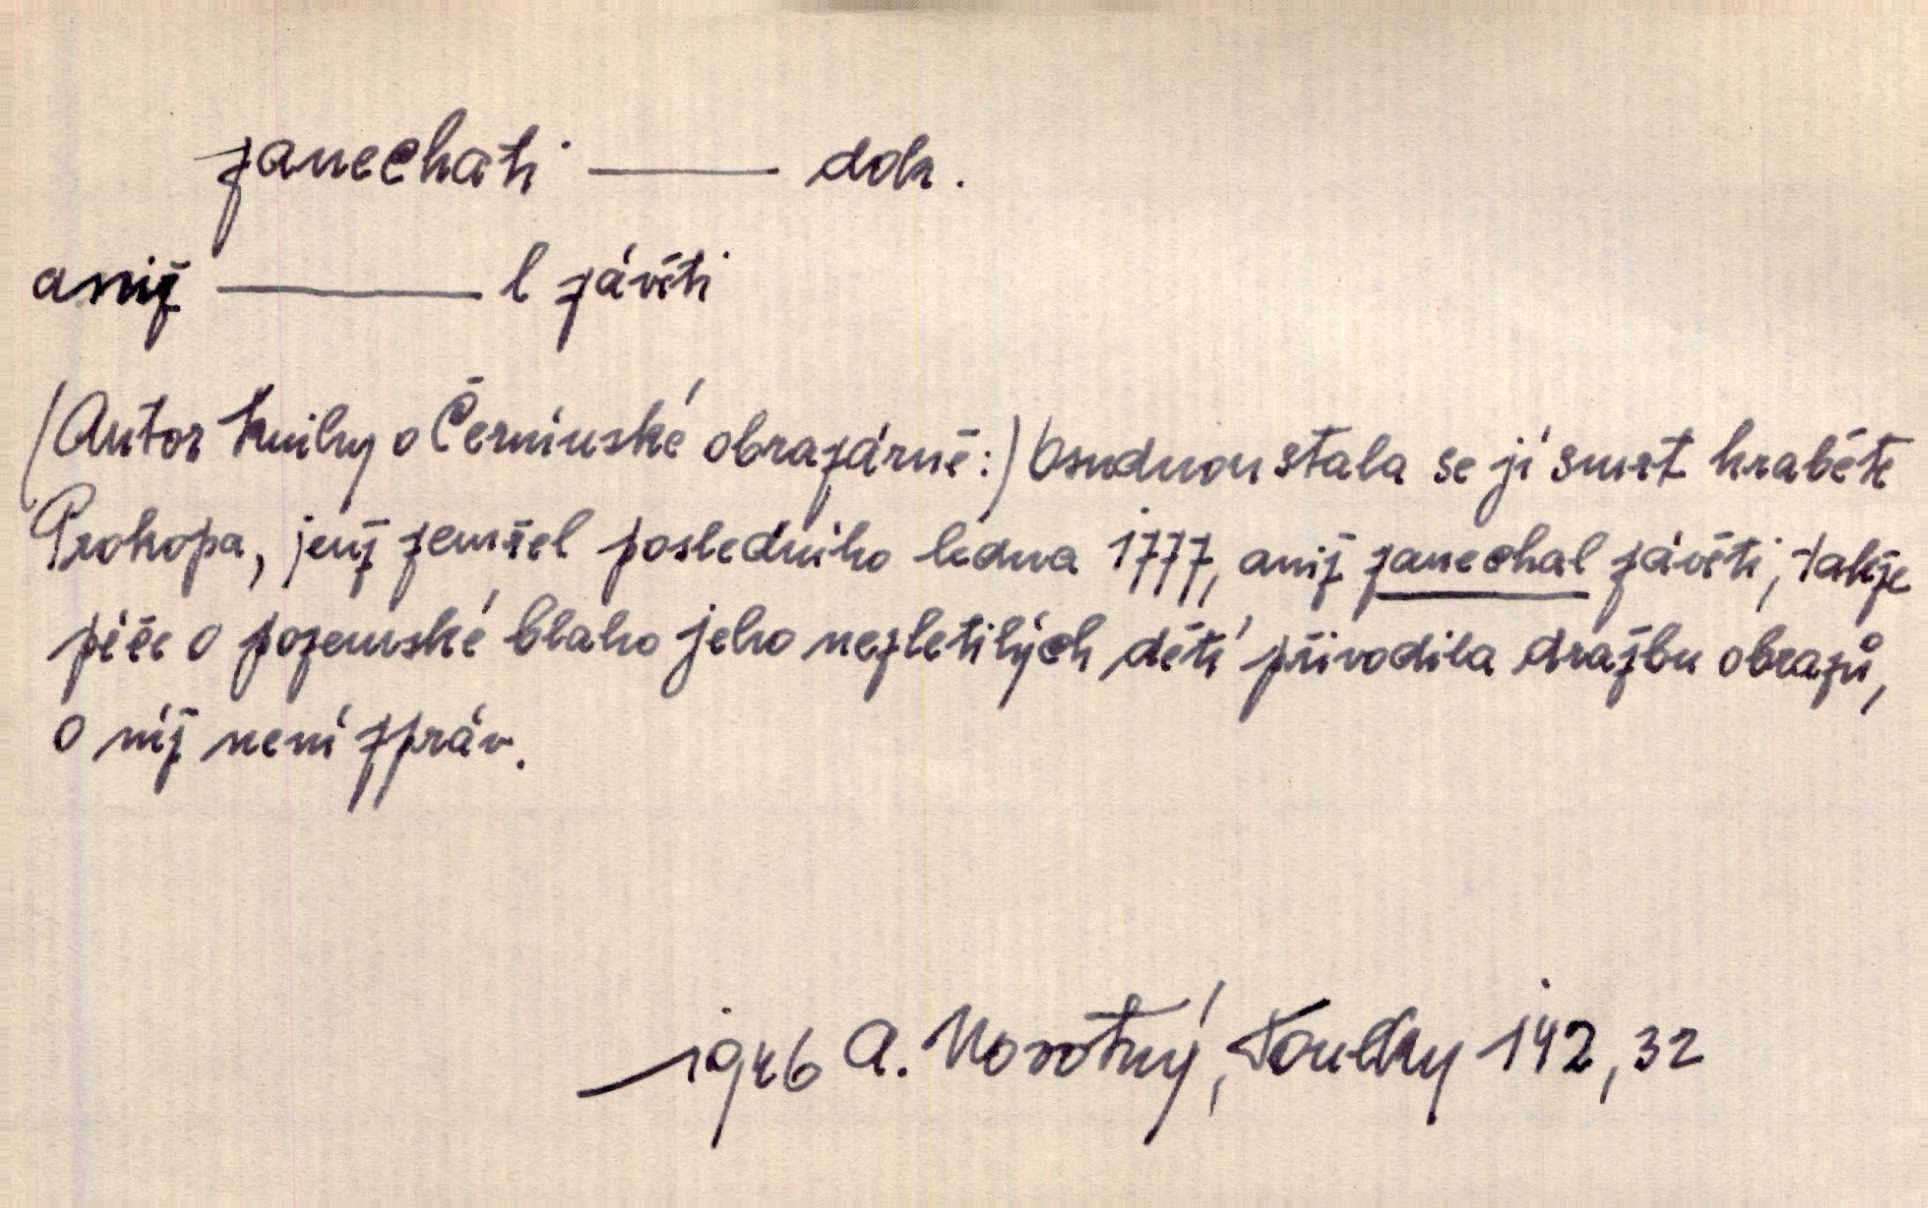 zanechati — dok.
aniž — l závěti
(Autor knihy o Černínské obrazárně:) Osudnou stala se jí smrt hraběte
Prokopa, jenž zemřel posledního ledna 1777, aniž zanechal závěti, takže
péče o pozemské blaho jeho nezletilých dětí přivodila dražbu obrazů,
o níž není zpráv.
1946 A. Novotný, Toulky 142, 32